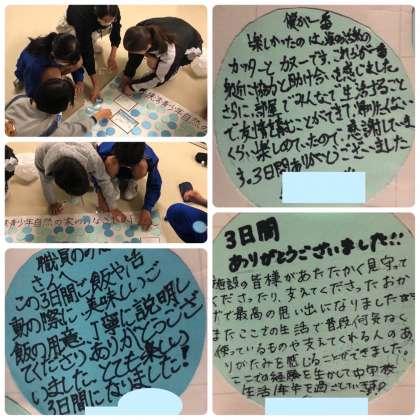 青少年自然の
青少年自然の家のみなさんへ
僕が一番
楽しかったのは海の活動の
カッターとカヌーです。これらが一番
協力と助け合いを感じました。
さらに、部屋でみんなで生活すること
で友情を深
ことができて、帰りたくない
くらい楽しめていたので、感謝していま
す。3日間ありがとうございました
職員のみ
さんへ
この3日間ご飯や活
動の際に美味しいご
飯の用意、丁寧に説明し
てくださりありがとうござ
いました。とても楽しい
3日間になりました!
3日間
ありがとうございました!!
施設の皆様があたたかく見守って
くださったり、支えてくださったおか
げで最高の思い出になりました
またここでの生活で普段何気なく
使っているものや支えてくれる人のあ
りがたみを感じることができました。
ここでの経験を生かして中学校
生活1年半を過ごしていきます